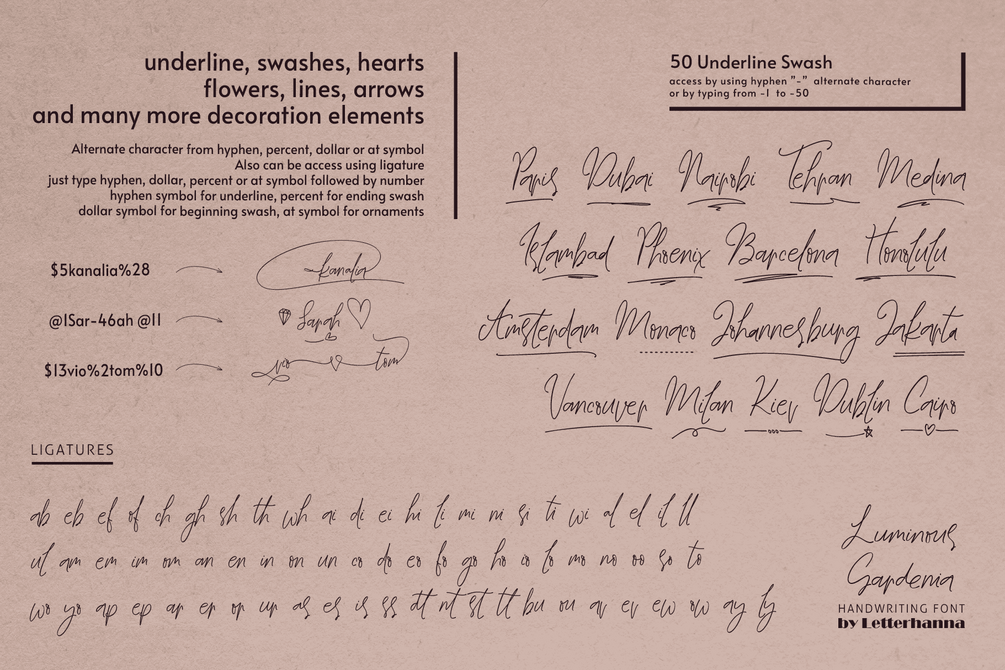 underline, swashes, hearts
flowers, lines, arrows
and many more decoration elements
Alternate character from hyphen, percent, dollar or at symbol
Also can be access using ligature
just type hyphen, dollar, percent or at symbol followed by number
hyphen symbol for underline, percent for ending swash
dollar symbol for beginning swash, at symbol for ornaments
$5kanalia%28
kanalia
@1Sar-46ah @11
Sarah
$13vio%2tom%10
vio tom
50 Underline Swash
access by using hyphen "-" alternate character
or by typing from -1 to -50
Paris Dubai Nairobi Tehran Medina
Islambad Phoenix Barcelona Honolulu
Amsterdam Monaco Johannesburg Jakarta
Vancouver Milan Kiev Dublin Cairo
LIGATURES
ab eb ef of ch gh sh th wh ai di ei hi li mi ni si ti wi al el il ll
ul am em im om an en in on un co do eo fo go ho io lo mo no oo so to
wo yo ap ep ar er or ur as es is ss dt nt st tt bu ou av ev ew ow ay ly
Luminous
Gardenia
HANDWRITING FONT
by Letterhanna